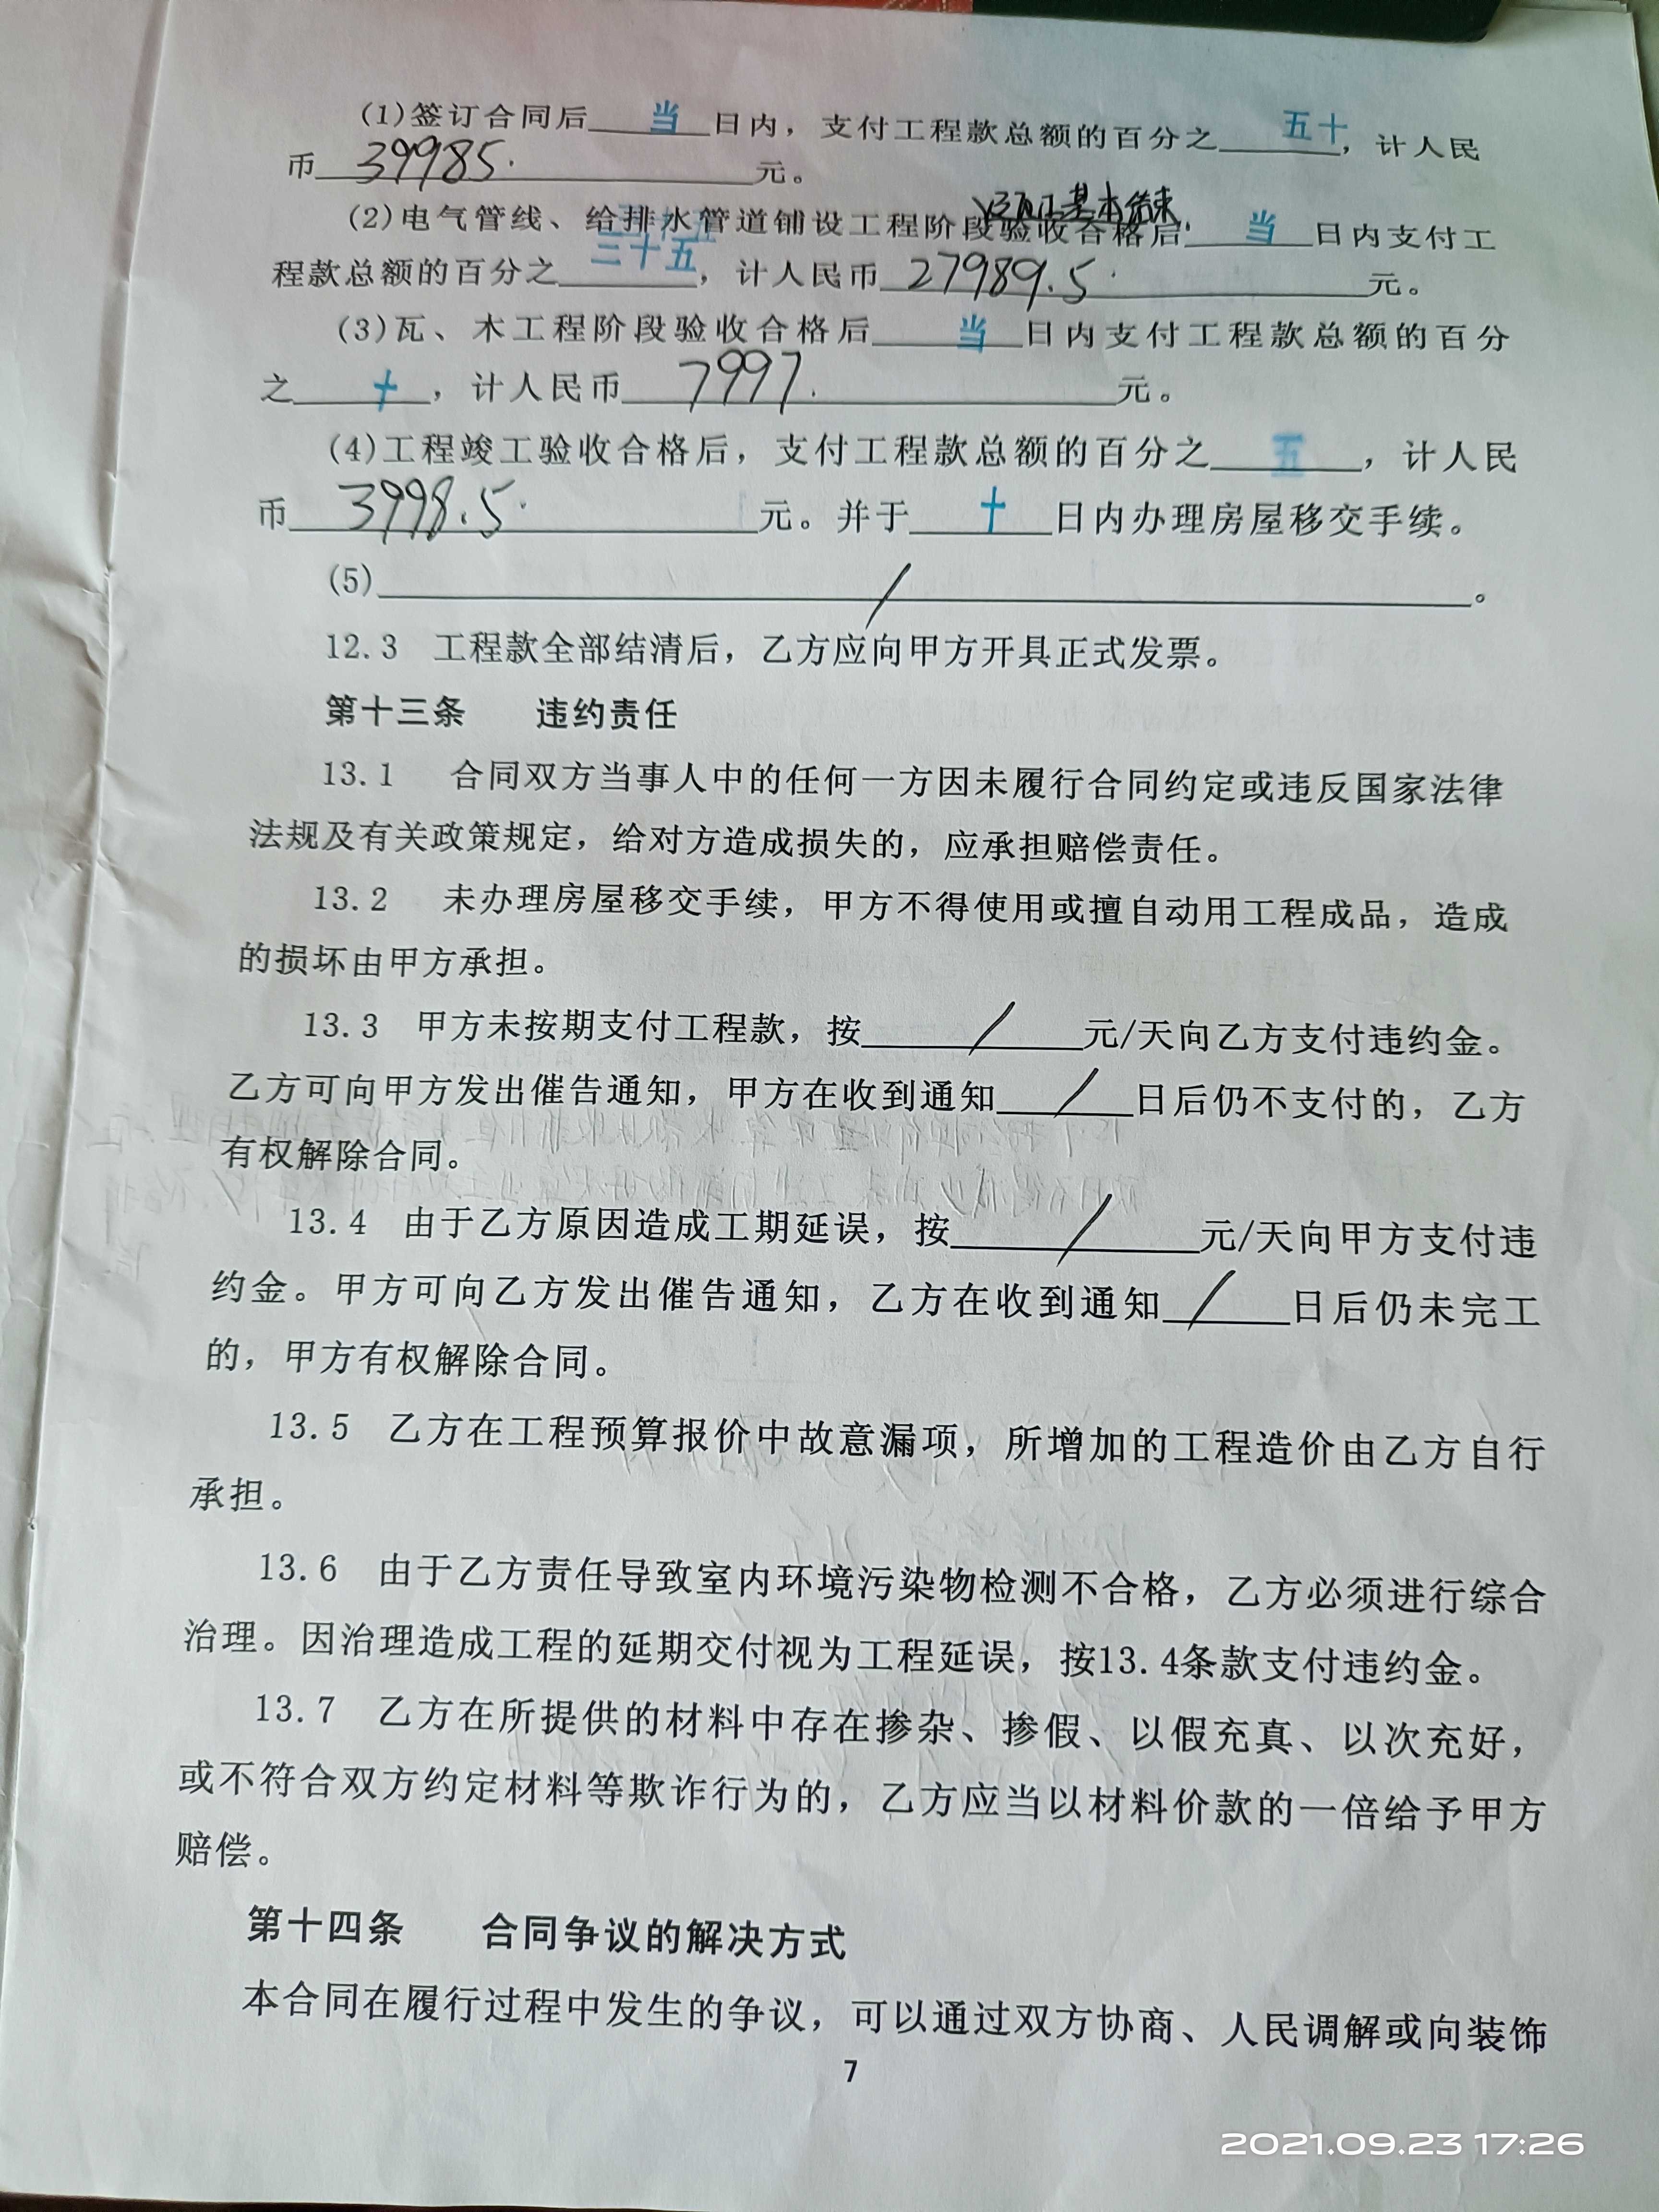 (1)签订合同后 当 日内，支付工程款总额的百分之 五十 ，计人民
币 39985. 元。
基本结束.
(2)电气管线、给排水管道铺设工程阶段验收合格后 当 日内支付工
程款总额的百分之 三十五 ，计人民币 27989.5. 元。
(3)瓦、木工程阶段验收合格后 当 日内支付工程款总额的百分
之 十 ，计人民币 7997. 元。
(4)工程竣工验收合格后，支付工程款总额的百分之 五 ，计人民
币 3998.5. 元。并于 十 日内办理房屋移交手续。
(5) / 。
12.3 工程款全部结清后，乙方应向甲方开具正式发票。
第十三条 违约责任
13.1 合同双方当事人中的任何一方因未履行合同约定或违反国家法律
法规及有关政策规定，给对方造成损失的，应承担赔偿责任。
13.2 未办理房屋移交手续，甲方不得使用或擅自动用工程成品，造成
的损坏由甲方承担。
13.3 甲方未按期支付工程款，按 / 元/天向乙方支付违约金。
乙方可向甲方发出催告通知，甲方在收到通知 / 日后仍不支付的，乙方
有权解除合同。
13.4 由于乙方原因造成工期延误，按 / 元/天向甲方支付违
约金。甲方可向乙方发出催告通知，乙方在收到通知 / 日后仍未完工
的，甲方有权解除合同。
13.5 乙方在工程预算报价中故意漏项，所增加的工程造价由乙方自行
承担。
13.6 由于乙方责任导致室内环境污染物检测不合格，乙方必须进行综合
治理。因治理造成工程的延期交付视为工程延误，按13.4条款支付违约金。
13.7 乙方在所提供的材料中存在掺杂、掺假、以假充真、以次充好，
或不符合双方约定材料等欺诈行为的，乙方应当以材料价款的一倍给予甲方
赔偿。
第十四条 合同争议的解决方式
本合同在履行过程中发生的争议，可以通过双方协商、人民调解或向装饰
7
2021.09.23 17:26